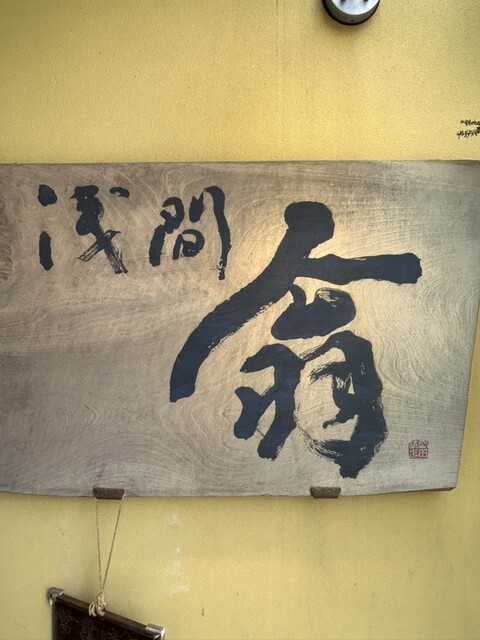 浅間
翁